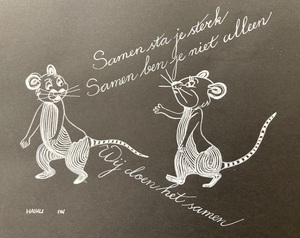 Samen sta je sterk
Samen ben je niet alleen
Wij doen het samen